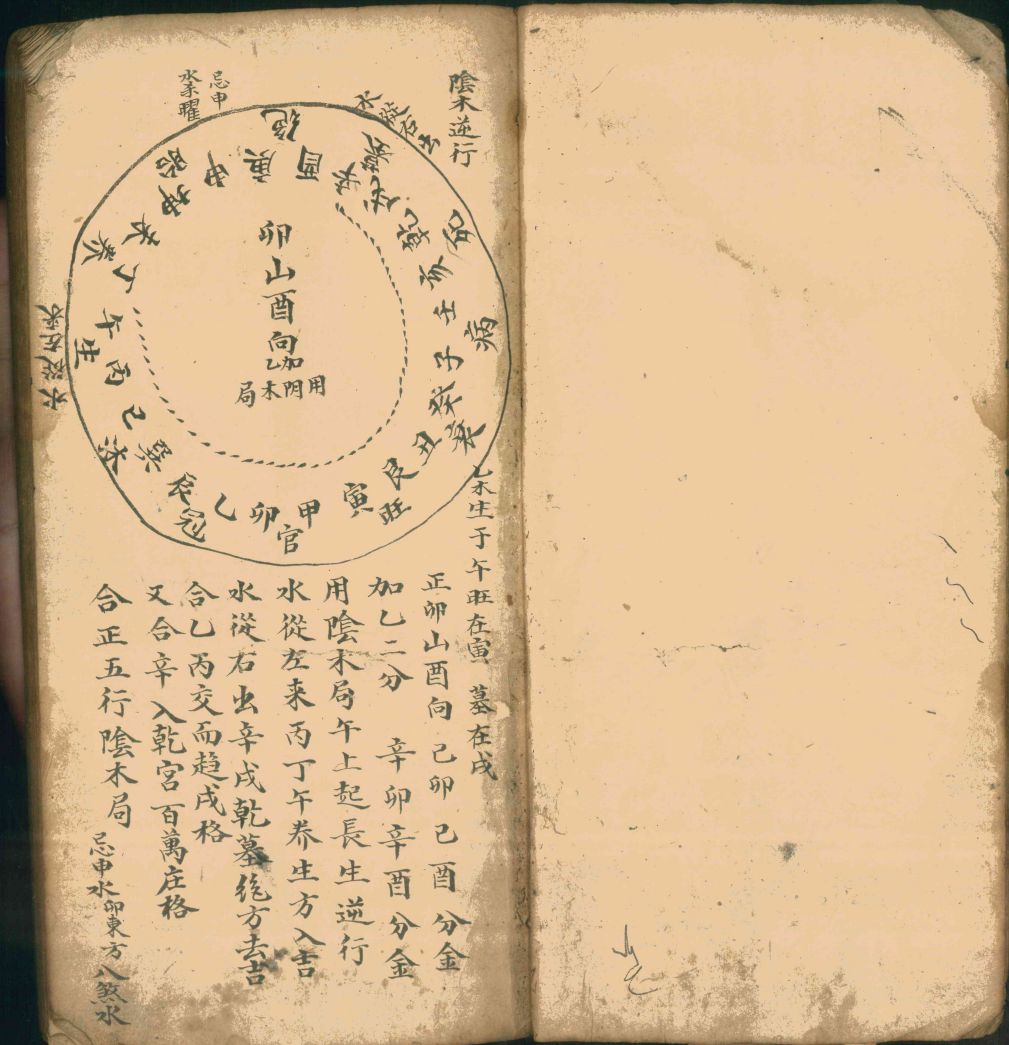 陰木逆行
水從右去
忌申
水來曜
水從左來
卯山酉向
加乙
用阴木局
絕
酉
辛
戌
墓
乾
死
亥
壬
子
病
癸
衰
丑
艮
旺
寅
甲
官
卯
乙
冠
辰
巽
沐
巳
丙
生
午
丁
養
未
坤
胎
申
庚
乙木生于午旺在寅 墓在戌
正卯山酉向 己卯 己酉 分金
加乙二分 辛卯辛酉分金
用陰木局午上起長生逆行
水從左来丙丁午养生方入吉
水從右出辛戌乾墓絶方去吉
合乙丙交而趋戌格
又合辛入乾宮百萬庄格
合正五行陰木局
忌申水卯東方八煞水